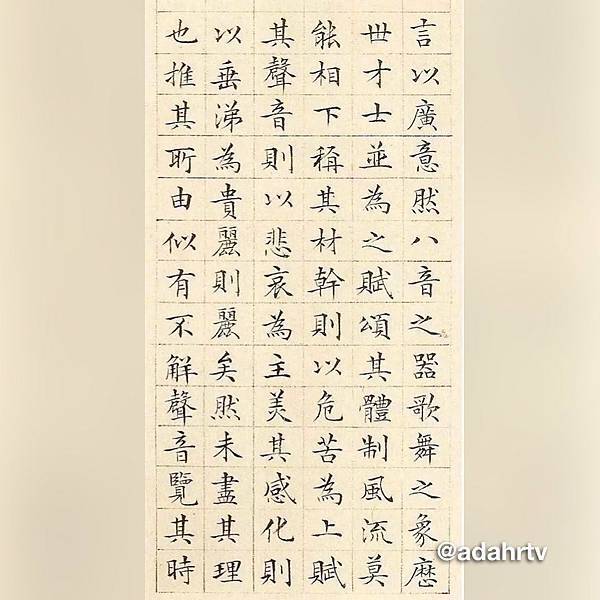 言以廣意然八音之器歌舞之象歴
世才士並為之賦頌其體制風流莫
能相下稱其材幹則以危苦為上賦
其聲音則以悲哀為主美其感化則
以垂涕為貴麗則麗矣然未盡其理
也推其所由似有不解聲音覽其時
@adahrtv